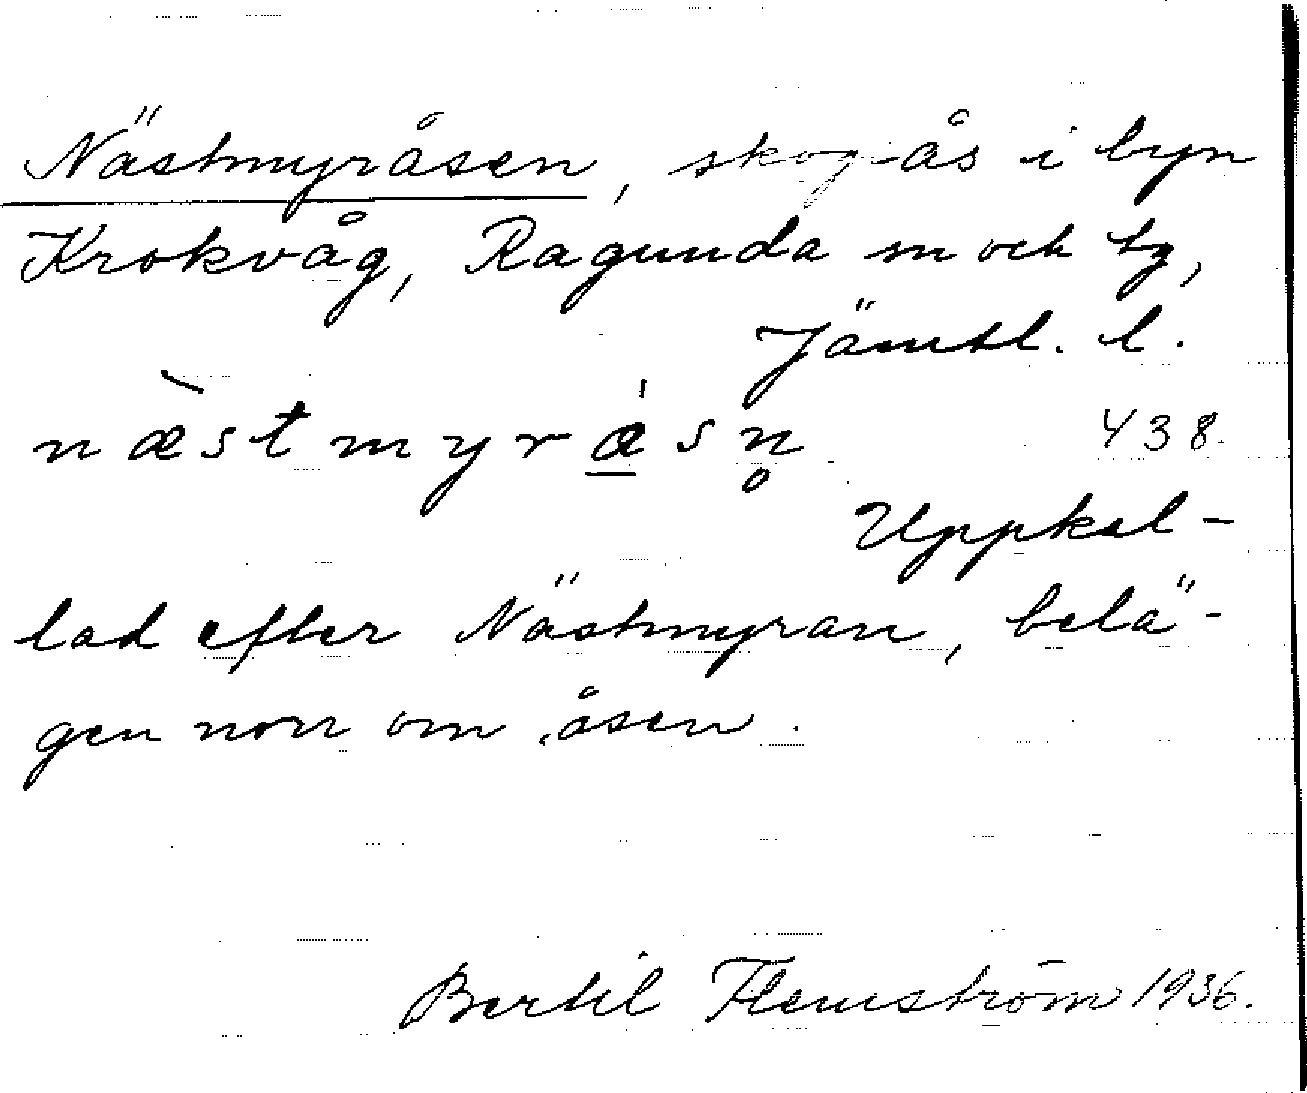 Nästmyråsen, skogsås i byn
Krokvåg, Ragunda sn och tg,
Jämtl. l.
næ̀stmyrǽ̱sn̥ 438.
Uppkal-
lad efter Nästmyran, belä-
gen norr om åsen.
Bertil Flemström 1936.